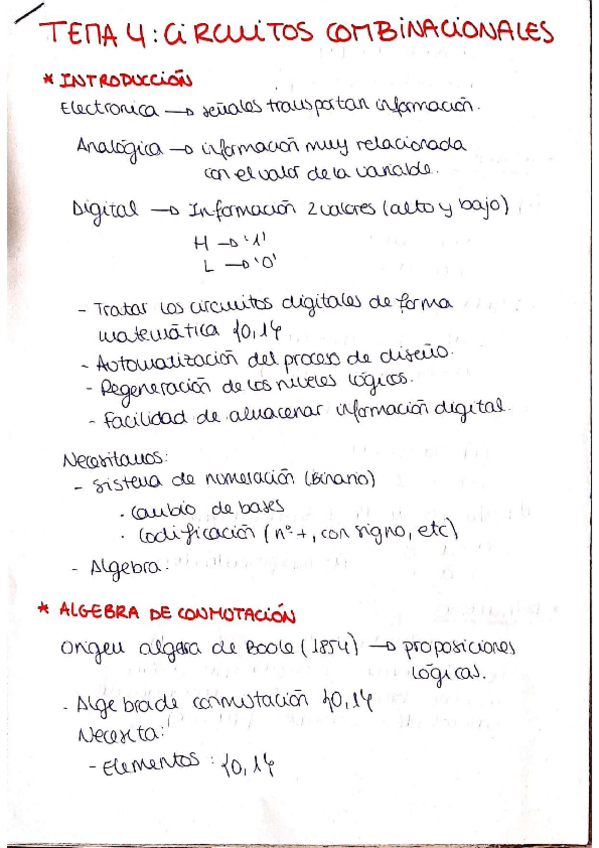 TEMA 4: CIRCUITOS COMBINACIONALES
* INTRODUCCIÓN
Electronica → señales transportan información.
Analógica → información muy relacionada
con el valor de la variable.
Digital → Información 2 valores (alto y bajo)
H → '1'
L → '0'
- Tratar los circuitos digitales de forma
matemática {0,1}
- Automatización del proceso de diseño.
- Regeneración de los niveles lógicos.
- Facilidad de almacenar información digital.
Necesitamos:
- Sistema de numeración (Binario)
· Cambio de bases
· Codificación (nº +, con signo, etc)
- Algebra:
* ALGEBRA DE CONMUTACIÓN
Origen algebra de Boole (1854) → proposiciones
lógicas.
· Algebra de conmutación {0,1}
Necesita:
- Elementos: {0,1}